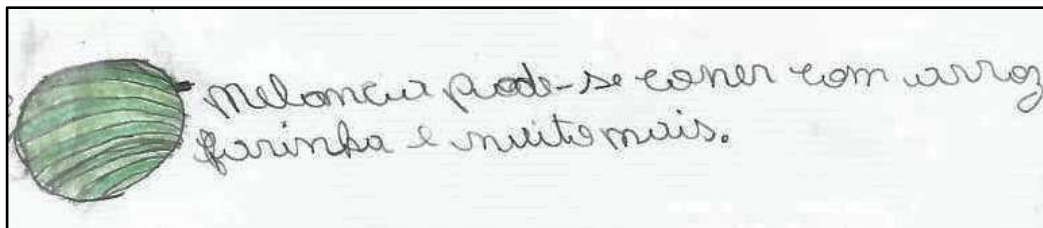 Melancia pode-se comer com arroz
farinha e muito mais.